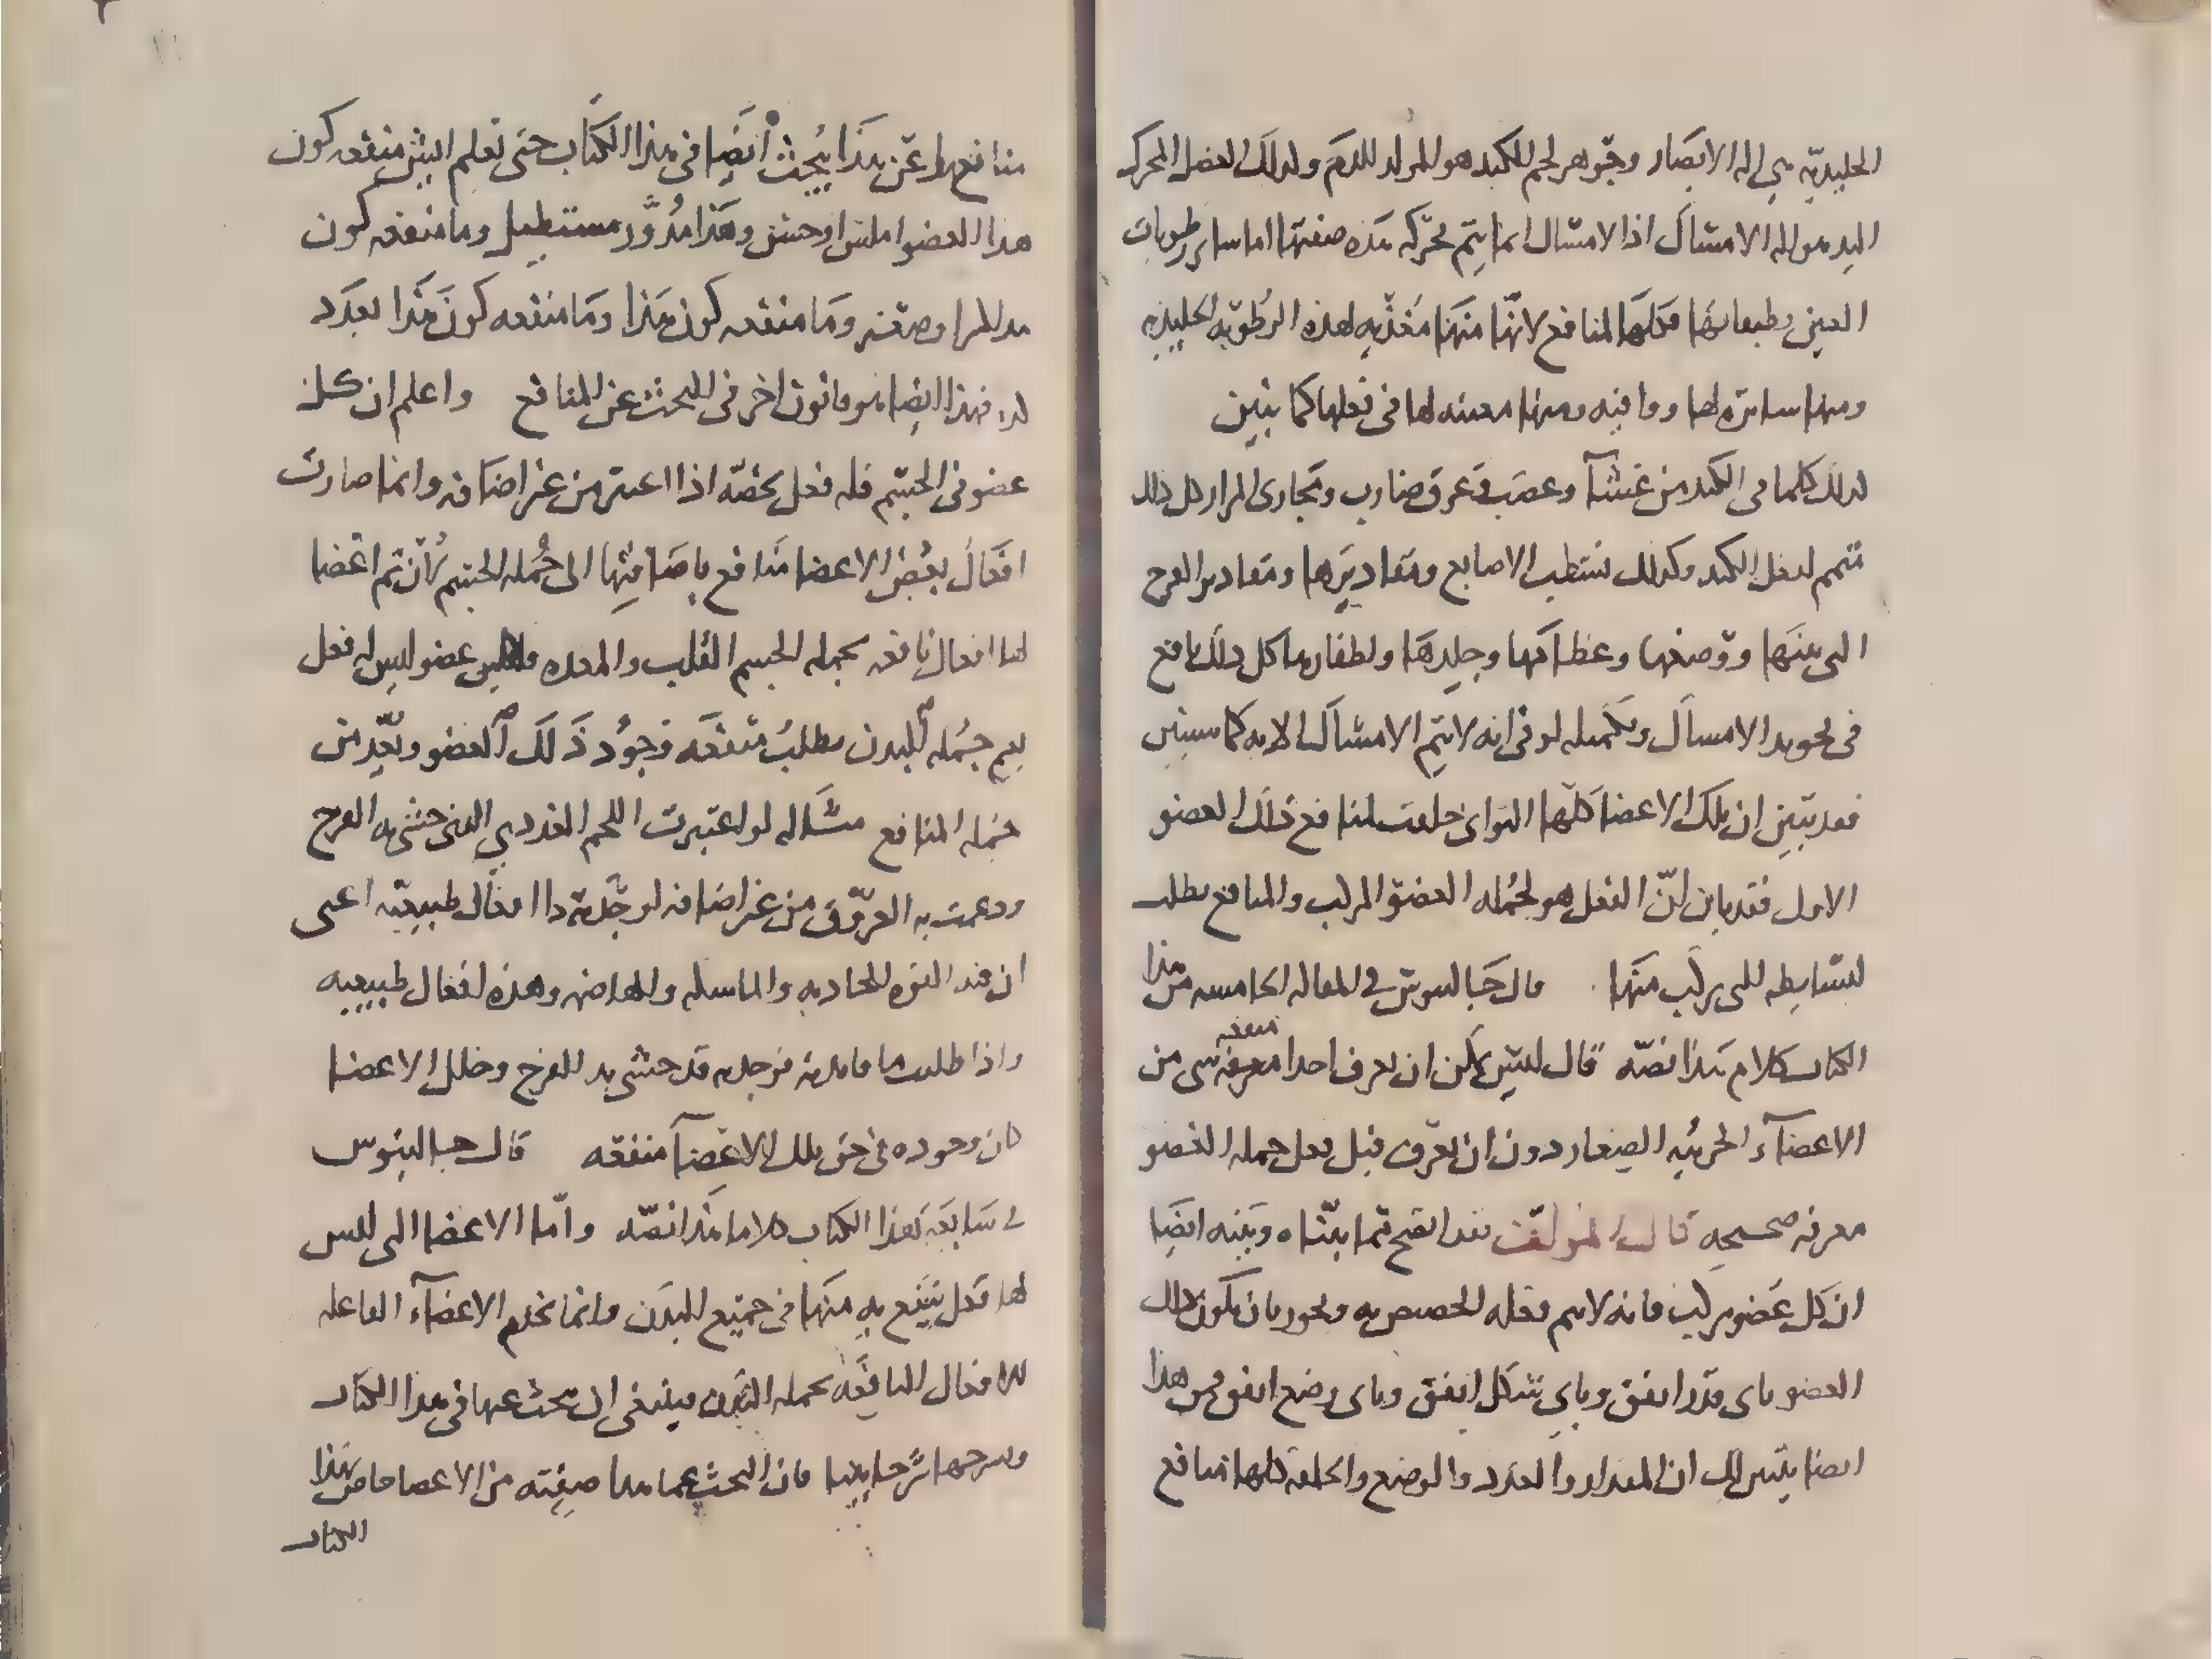 الجليديه هي اله الابصار وجوهر لحم الكبد هو المولد للدم ولذلك العضل المحرك
لليد هو اله الامساك اذ الامساك انما يتم بحركه هذه صفتها اما ساير رطوبات
العين وطبقاتها فكلها لمنافع لانها منها مغذيه لهذه الرطوبه الجليديه
ومنها ساتره لها وواقيه ومنها معينه لها في فعلها كما نبين
كذلك كلما في الكبد من غشآ وعصب وعرق ضارب ومجارى المرار كل ذلك
متمم لفعل الكبد وكذلك تشطيب الاصابع ومقاديرها ومقادير الفرج
التي بينها ووضعها وعظامها وجلدها واظفارها كل ذلك نافع
في تجويد الامساك وتكميله لو في انه لا يتم الامساك الا به كما سنبين
فقد تبين ان تلك الاعضا كلها التوانى خلقت لمنافع ذلك العضو
الاول فقد بان انّ الفعل هو لجمله العضو المركب والمنافع تطلب
لبسايطه التى تركب منها قال جالينوس في المقاله الخامسه من هذا
الكتاب كلاما هذا نصّه قال ليس يمكن ان يعرف احدا منفعه شى من
الاعضآء الجزئيه الصغار دون ان يعرف قبل فعل جمله العضو
معرفه صحيحه قال المؤلف فقد اتضح بما بيّناه وبينه ايضا
ان كل عضو مركب فانه لا يتم فعله الخصيص به ويجود بان يكون ذلك
العضو باى قدر اتفق وباي شكل اتفق وباى وضع اتفق فمن هذا
ايضا يتبين لك ان المقدار والعدد والوضع والخلقه كلها منافع
منافعها عن هذا يبحث ايضا في هذا الكتاب حتى تعلم ايش منفعه كون
هذا العضو املس او خشن وهذا مدوّر مستطيل وما منفعه كون
هذا المرا وصفته وما منفعه كون هذا وما منفعه كون هذا بعدد
كذا فهذا ايضا هو قانون اخر في البحث عن المنافع واعلم ان كل
عضو في الجسم فله فعل يخصّه اذا اعتبر من غير اضافه وانما صارت
افعال بعض الاعضا منافع باضافتها الى جمله الجسم لان ثم اعضا
لها افعال نافعه بجمله الجسم القلب والمعده واى عضو ليس له فعل
يعم جمله البدن يطلب منفعه وجود ذلك العضو وتعد من
جمله المنافع مثاله لو اعتبرت اللحم الغددي الذى حشى به الفرج
ودعمت به العروق من غير اضافه لوجدته ذا افعال طبيعيه اعنى
ان فيه القوه الجاذبه والماسكه والهاضمه وهذه افعال طبيعيه
واذا طلبت ما فايدته فوجدته قد حشى به الفرج وخلل الاعضا
كان وجوده في حق تلك الاعضآ منفعه قال جالينوس
في سابعه هذا الكتاب كلاما هذا نصّه وامّا الاعضا التى ليس
لها فعل ينتفع به منها في جميع البدن وانما تخدم الاعضآء الفاعله
للافعال النافعه بجمله البدن فينبغى ان تبحث عنها في هذا الكتاب
وتشرحها شرحا بينا فان البحث عما هذا صفته من الاعضا خاص بهذا
الكتاب